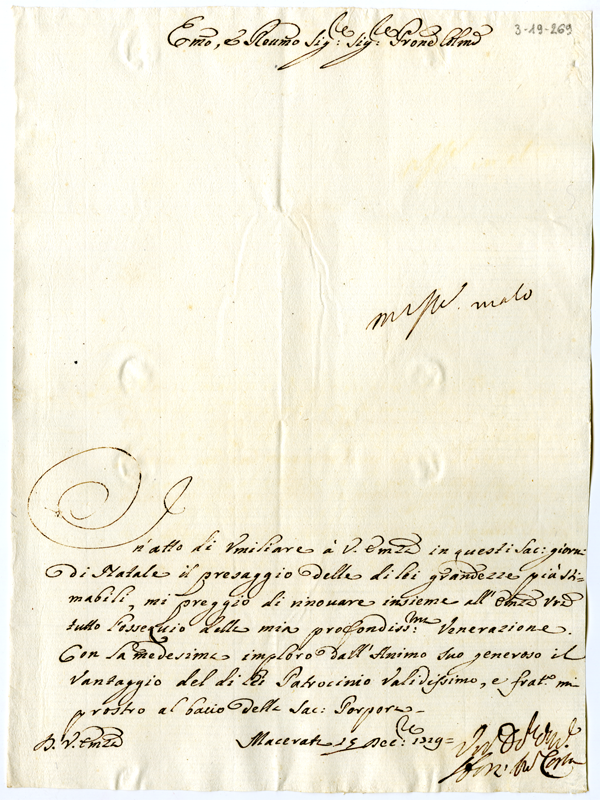 3-19-269
Emo, e Reumo Sig:re Sig:re Prone Colmo
malo
In'atto di Vmiliare à V. Emza in questi Sac: giorni
di Natale il presaggio delle di lei grandezze più sti-
mabili, mi preggio di rinovare insieme all'Emza Vra
tutto l'ossequio della mia profondiss:ma Venerazione.
Con la medesima imploro dall'Animo suo generoso il
Vantaggio del di Lei Patrocinio Validissimo, e frato mi
prostro al bacio della Sac: Porpora-
D. V. Emza Macerata 15 Dec:re 1719=